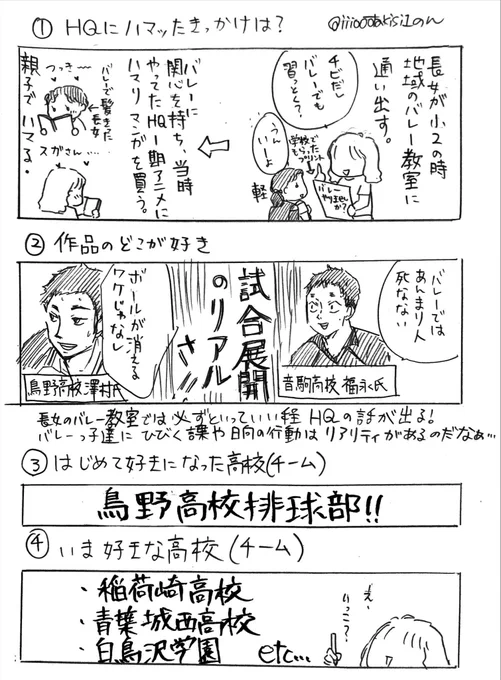 ① HQにハマッたきっかけは?
@iiio00akisiLのん
長女が小2の時
地域のバレー教室に
通い出す。
チビだし
バレーでも
習っとく?
うん
いーよ
学校で
もらったプリント
バレー
やりませんか?
軽
バレーに
関心を持ち、当時
やってたHQ1期アニメに
ハマりマンガを買う。
つっきー…
バレーで髪きった
長女
スガさん…
親子でハマる。
② 作品のどこが好き
バレーでは
あんまり人
死なない
音駒高校・福永氏
試合展開
のリアルさ
ボールが消える
ワケじゃなし
烏野高校澤村氏
長女のバレー教室では必ずといっていい程HQの話が出る!
バレーっ子達にひびく課や日向の行動はリアリティがあるのだなぁ…
③ はじめて好きになった高校(チーム)
烏野高校排球部!!
④ いま好きな高校(チーム)
・稲荷崎高校
・青葉城西高校
・白鳥沢学園 etc…
え、
いっこ?